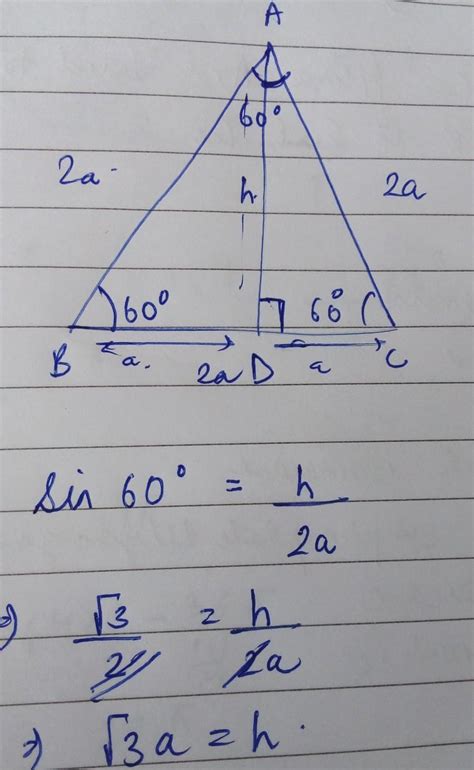 A
60°
2a
h
2a
60°
60°
B
a.
2a
D
a
C
Sin 60° = h/2a
⇒ √3/2 = h/2a
⇒ √3a = h.